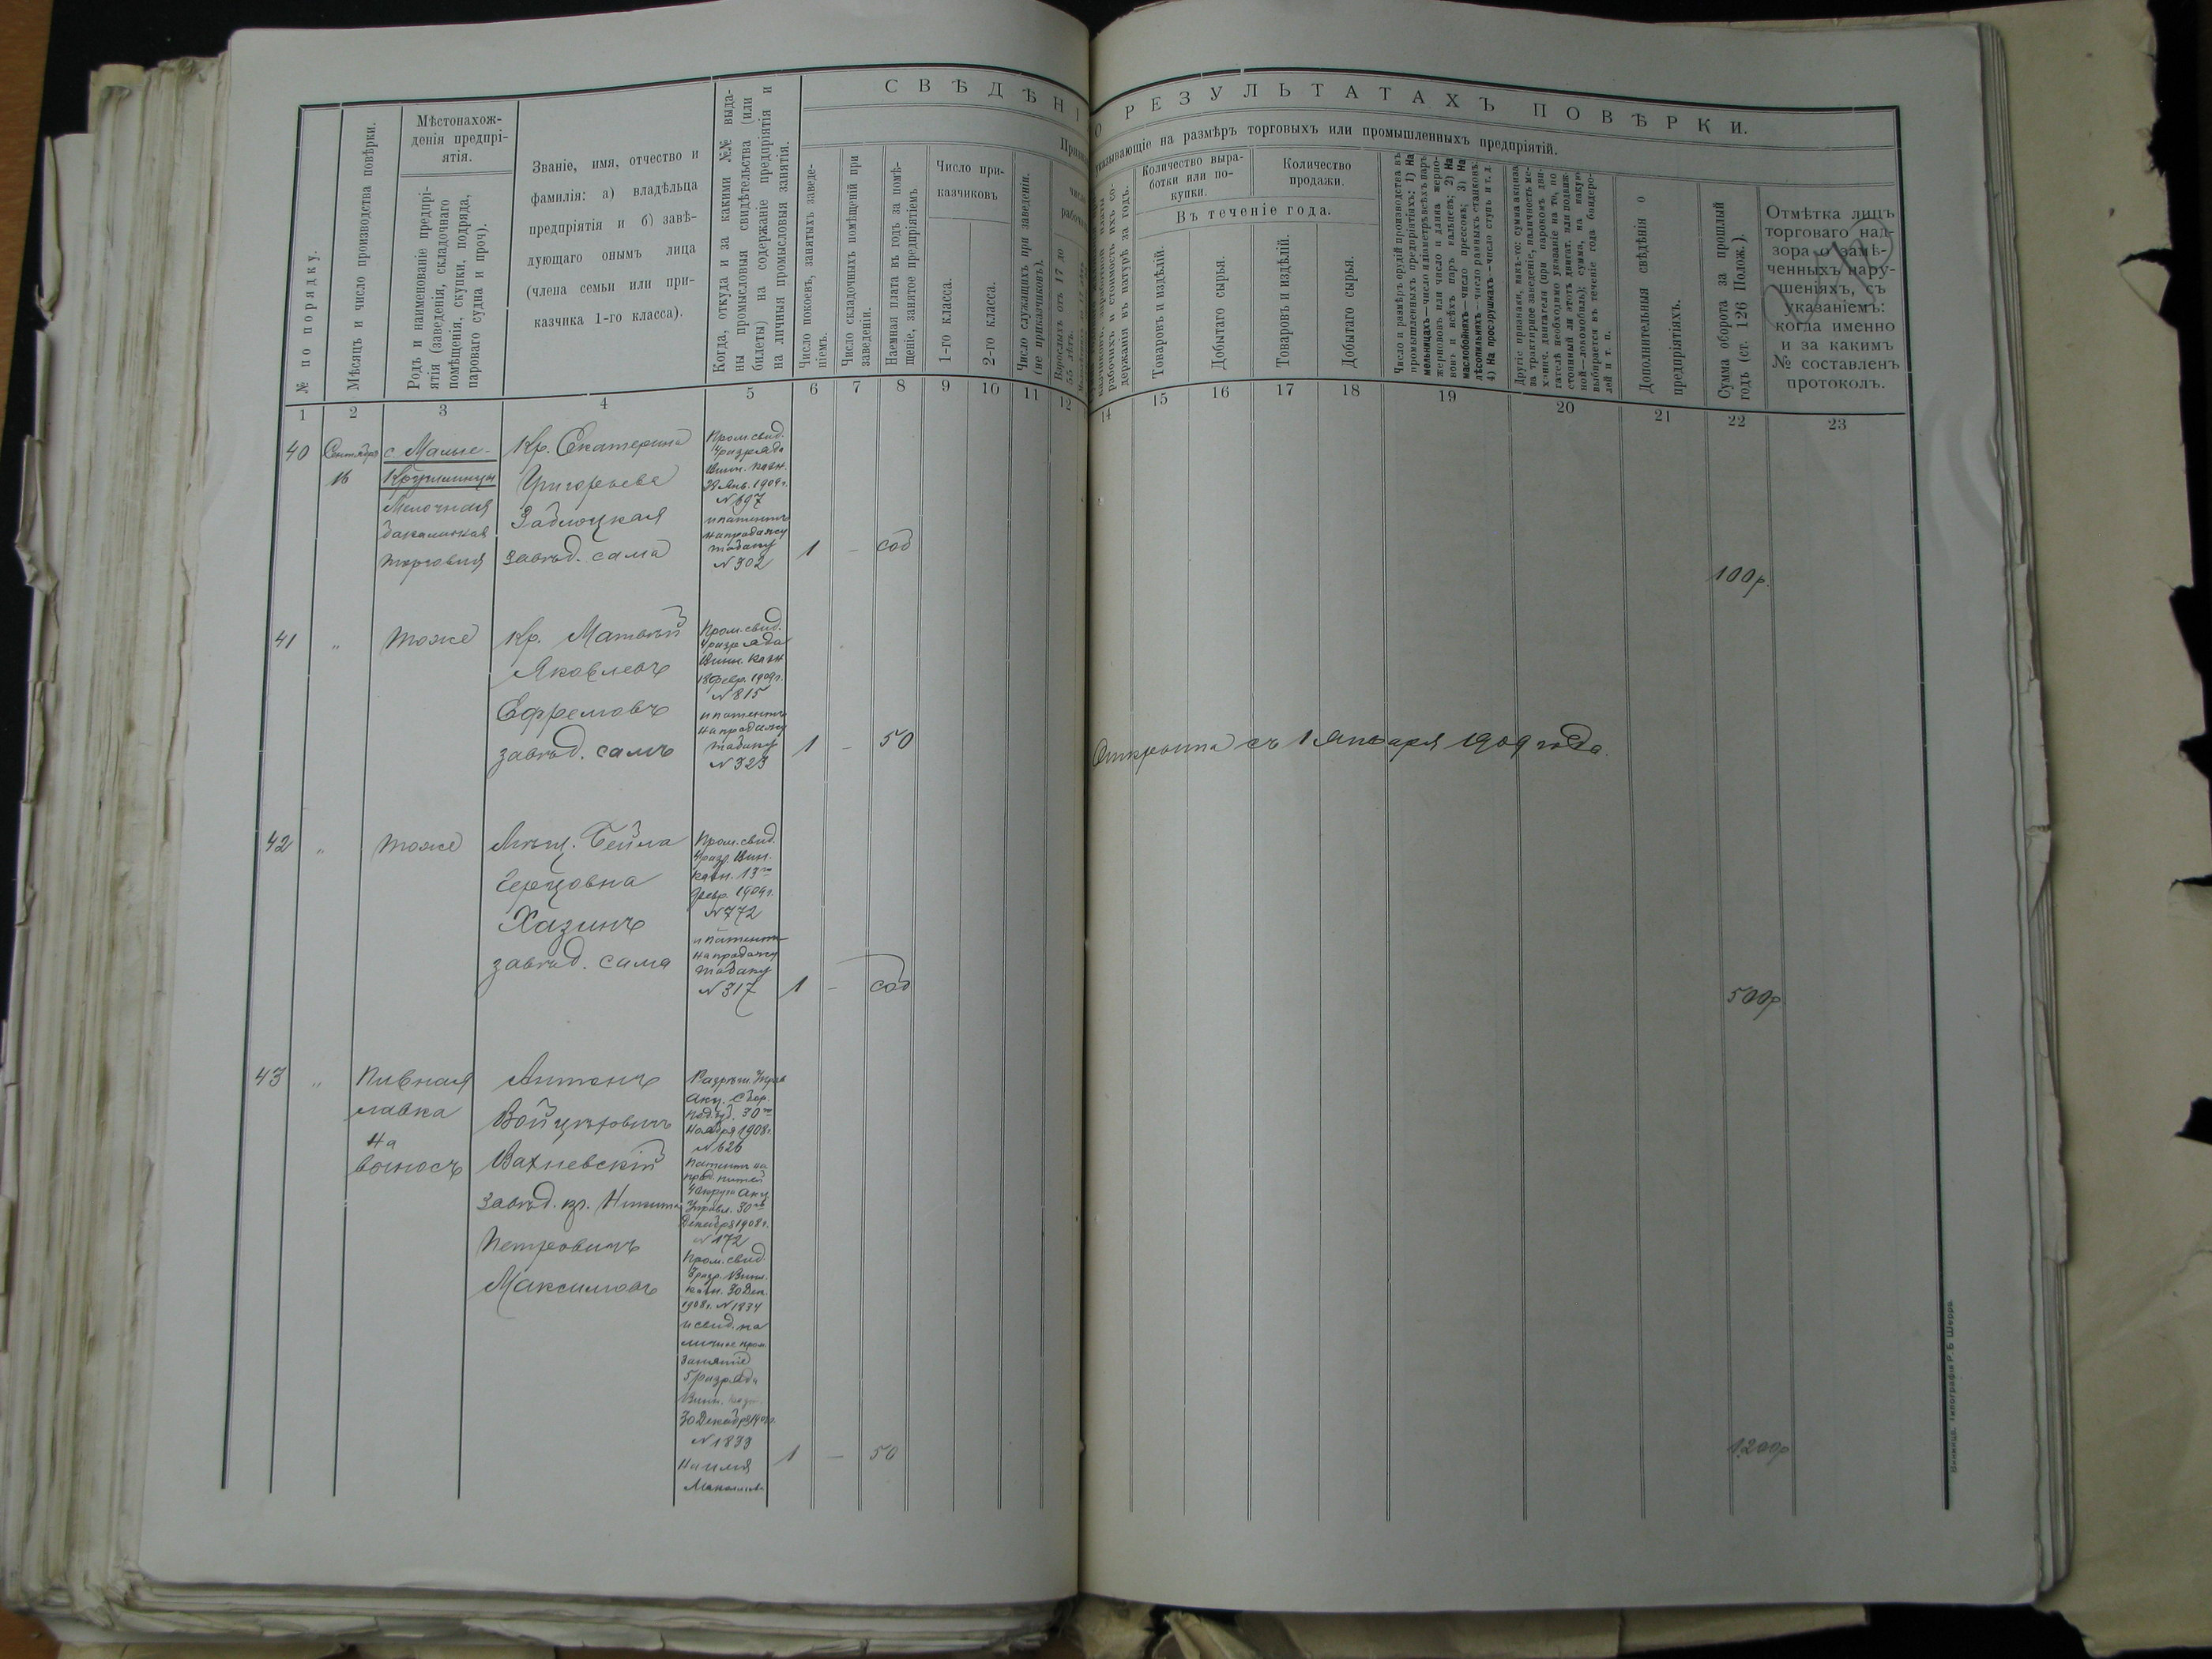 СВѢДѢНІ
О РЕЗУЛЬТАТАХЪ ПОВѢРКИ.
указывающіе на размѣръ торговыхъ или промышленныхъ предпріятій.
№ по порядку.
Мѣсяцъ и число производства повѣрки.
Мѣстонахож-
денія предпрі-
ятія.
Родъ и наименованіе предпрі-
ятія (заведенія, складочнаго
помѣщенія, скупки, подряда,
пароваго судна и проч).
Званіе, имя, отчество и
фамилія: а) владѣльца
предпріятія и б) завѣ-
дующаго онымъ лица
(члена семьи или при-
казчика 1-го класса).
Когда, откуда и за какими №№ выда-
ны промысловыя свидѣтельства (или
билеты) на содержаніе предпріятія и
на личныя промысловыя занятія.
Число покоевъ, занятыхъ заведе-
ніемъ.
Число складочныхъ помѣщеній при
заведеніи.
Наемная плата въ годъ за помѣ-
щеніе, занятое предпріятіемъ
Число при-
казчиковъ
1-го класса.
2-го класса.
Число служащихъ при заведеніи.
(не приказчиковъ).
Взрослыхъ отъ 17 до
55 лѣтъ.
рабочихъ и стоимость ихъ со-
держанія въ натурѣ за годъ.
Количество выра-
ботки или по-
купки.
Количество
продажи.
Въ теченіе года.
Товаровъ и издѣлій.
Добытаго сырья.
Товаровъ и издѣлій.
Добытаго сырья.
Число и размѣръ орудій производства въ
промышленныхъ предпріятіяхъ: 1) На
мельницахъ—число и діаметръ всѣхъ паръ
жернововъ или число и длина жерно-
вовъ и всѣхъ паръ вальцевъ; 2) На
маслобойняхъ—число прессовъ; 3) На
лѣсопильняхъ—число рамныхъ станковъ;
4) На просорушкахъ—число ступъ и т. д.
Другіе признаки, какъ-то: сумма акциза
за трактирное заведеніе, наличность ме-
ханич. двигателя (при паровомъ дви-
гателѣ необходимо указаніе на то, по
стоянный ли этотъ двигат. или подвиж-
ной—локомобиль); сумма, на какую
выбирается въ теченіе года бандеро-
лей и т. п.
Дополнительныя свѣдѣнія о
предпріятіяхъ.
Сумма оборота за прошлый
годъ (ст. 126 Полож.).
Отмѣтка лицъ
торговаго над-
зора о замѣ-
ченныхъ нару-
шеніяхъ, съ
указаніемъ:
когда именно
и за какимъ
№ составленъ
протоколъ.
1 2 3 4 5 6 7 8 9 10 11 12
14 15 16 17 18 19 20 21 22 23
40 Сентября
16
с. Малые-
Крушлинцы
Мелочная
бакалейная
торговля
Кр. Екатерина
Григорьева
Заблоцкая
завѣд. сама
Пром. свид.
4 разряда
Винн. казн.
28 Янв. 1909 г.
№ 697
и патентъ
на продажу
табаку
№ 302
1 – соб
100 р.
41 " тоже
Кр. Матвѣй
Яковлевъ
Ефремовъ
завѣд. самъ
Пром. свид.
4 разряда
Винн. казн.
18 февр. 1909 г.
№ 815
и патентъ
на продажу
табаку
№ 323
1 – 50
Открыта съ 1 Января 1909 года.
42 " тоже
Мѣщ. Бейла
Герцовна
Хазинъ
завѣд. сама
Пром. свид.
4 разр. Вин.
казн. 13го
февр. 1909 г.
№ 772
и патентъ
на продажу
табаку
№ 317
1 – соб
500 р
43 "
Пивная
лавка
на
выносъ
Антонъ
Войцѣховичъ
Вахневскій
завѣд. кр. Никита
Петровичъ
Максимовъ
Разрѣш. Управ
Акц. Сбор.
30го
Ноября 1908 г.
№ 626
Патентъ на
прод. питей
4 округа Акц.
Управл. 30го
Декабря 1908 г.
№ 172
Пром. свид.
3 разр. Винн.
казн. 30 Дек.
1908 г. № 1834
и свид. на
личное пром.
занятіе
5 разряда
Винн. казн.
30 Декабря 1908 г.
№ 1899
на имя
Максимова
1 – 50
1200 р
Винница. Типографія Р. Б. Шерра